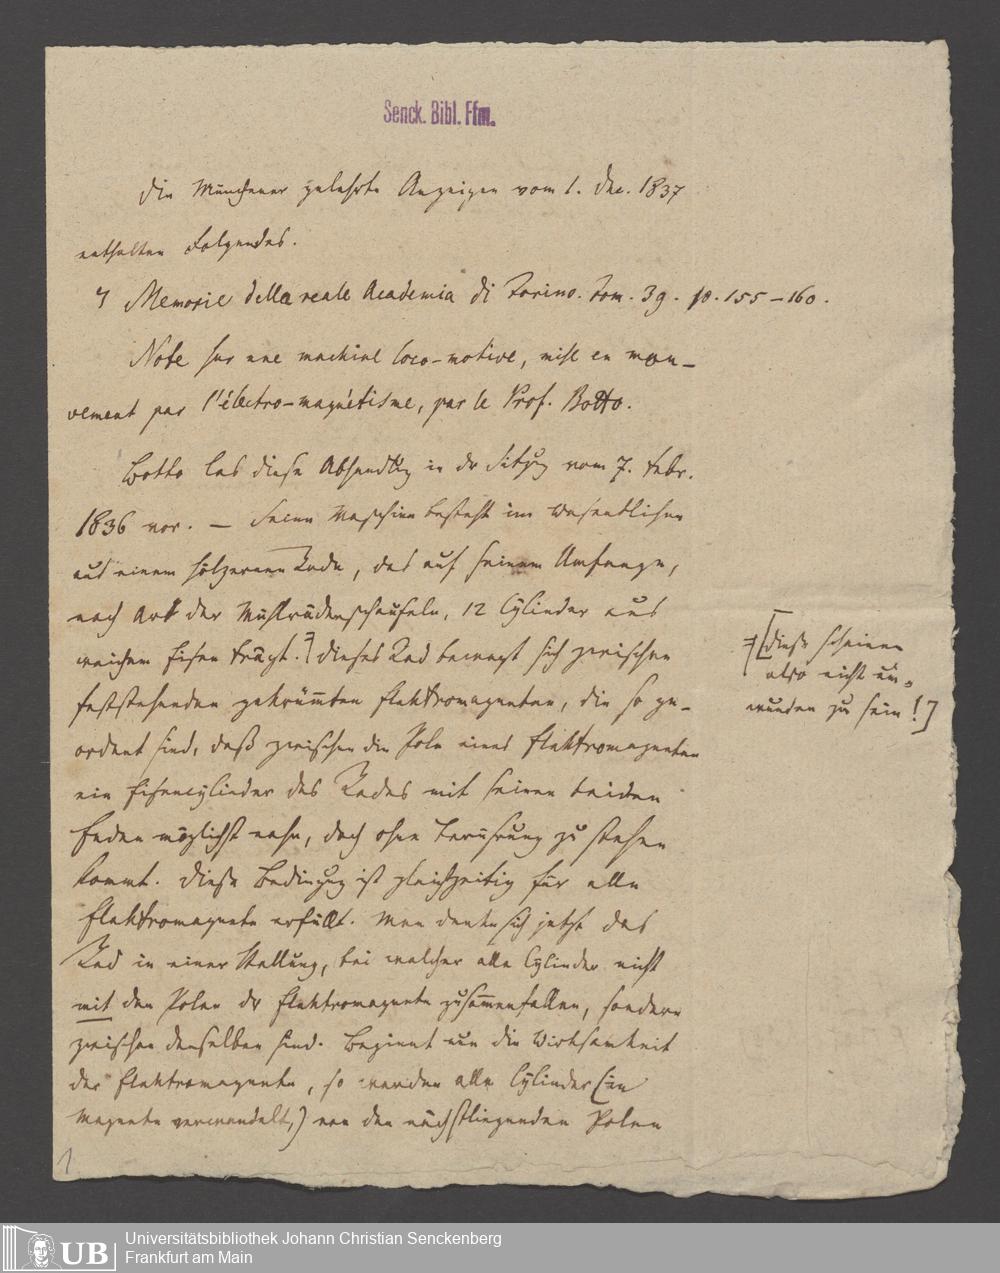 Senck. Bibl. Ffm.
Die Münchener gelehrte Anzeigen vom 1. Dec. 1837
enthalten Folgendes.
Memorie della reale Academia di Torino. Tom. 39. p. 155–160.
Note sur une machine loco-motive, mise en mou-
vement par l'électro-magnétisme, par le Prof. Botto.
Botto las diese Abhandlg in dr Sitzg vom 7. Febr.
1836 vor. – Seine Maschine besteht im Wesentlichen
aus einem hölzernen Rade, das auf seinem Umfange,
nach Art der Mühlräderschaufeln, 12 Cylinder aus
weichem Eisen trägt. Dieses Rad bewegt sich zwischen
feststehenden gekrümmten Elektromagneten, die so ge-
ordnet sind, daß zwischen die Pole eines Elektromagneten
ein Eisencylinder des Rades mit seinen beiden
Enden möglichst nahe, doch ohne Berührung zu stehen
kommt. Diese Bedingg ist gleichzeitig für alle
Elektromagnete erfüllt. Man denke sich jetzt das
Rad in einer Stellung, bei welcher alle Cylinder nicht
mit den Polen dr Elektromagnete zusammenfallen, sondern
zwischen denselben sind. Beginnt nun die Wirksamkeit
der Elektromagnete, so werden alle Cylinder (in
Magnete verwandelt,) von den nächstliegenden Polen
[diese scheinen
also nicht um-
wunden zu sein!]
1
UB
Universitätsbibliothek Johann Christian Senckenberg
Frankfurt am Main